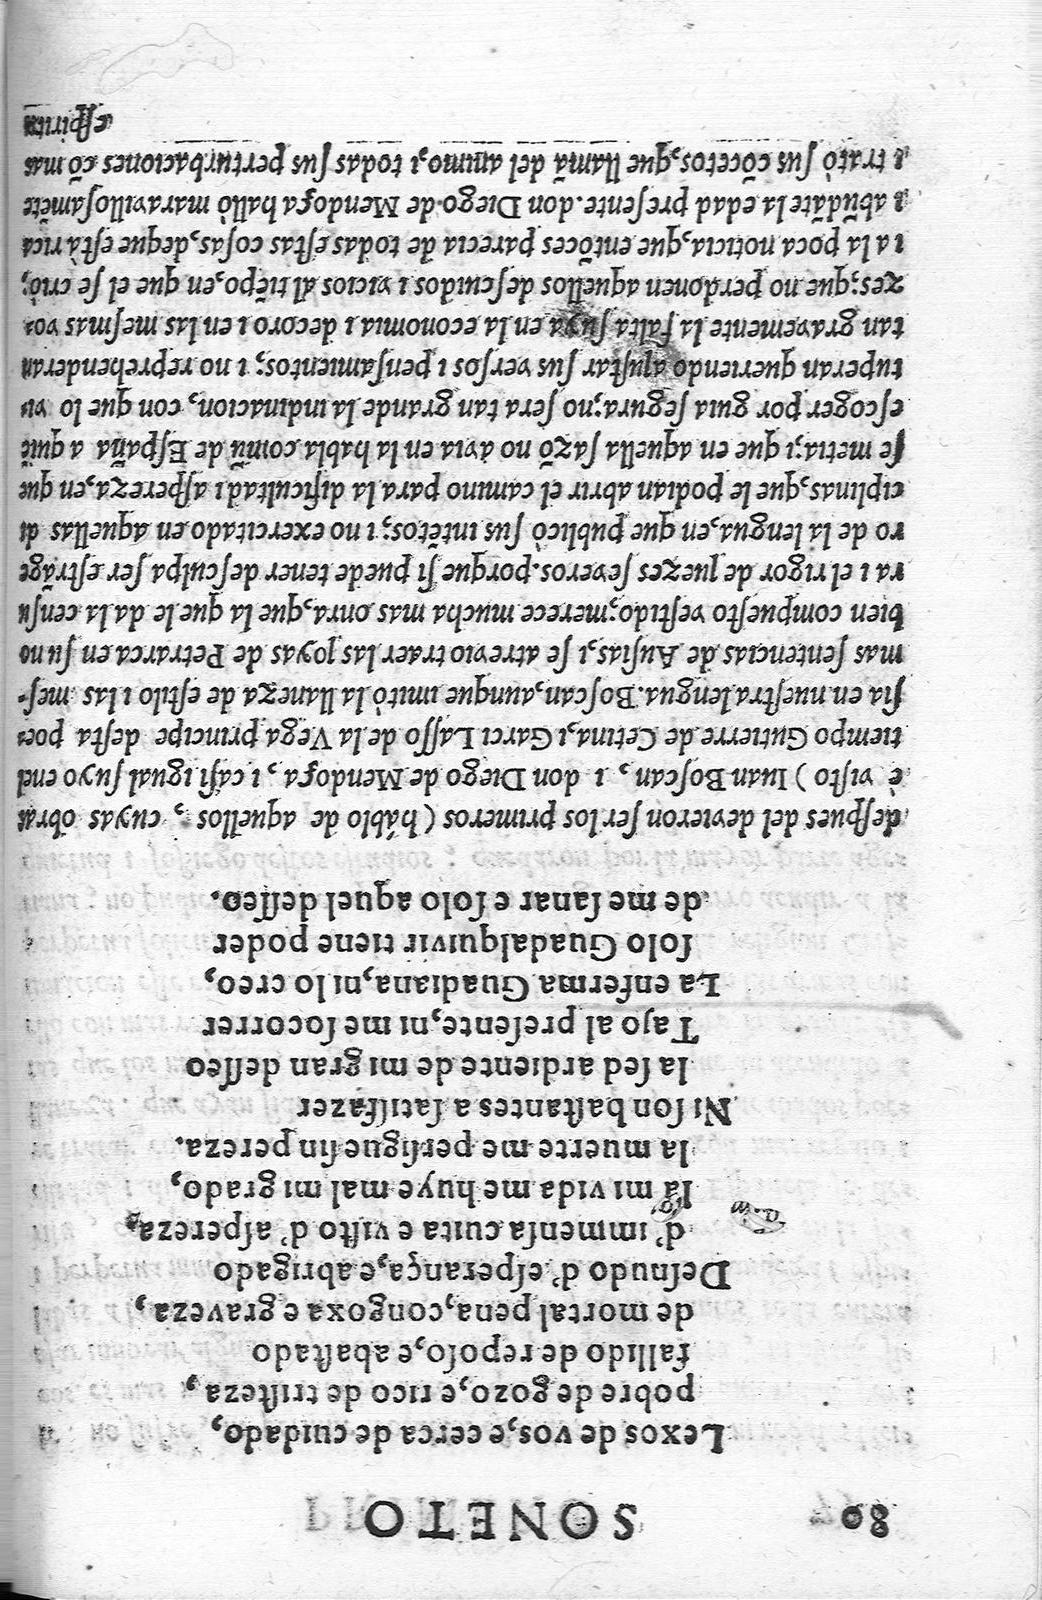 80 SONETO
Lexos de vos, e cerca de cuidado,
pobre de gozo, e rico de tristeza,
fallido de reposo, e abastado
de mortal pena, congoxa e graveza,
Desnudo d'esperança, e abrigado
d'immensa cuita e visto d'aspereza,
la mi vida me huye mal mi grado,
la muerte me persigue sin pereza.
Ni son bastantes a satisfazer
la sed ardiente de mi gran desseo
Tajo al presente, ni me socorrer
La enferma Guadiana, ni lo creo,
solo Guadalquivir tiene poder
de me sanar e solo aquel desseo.
despues del devieron ser los primeros (háblo de aquellos, cuyas obras
è visto) Iuan Boscan, i don Diego de Mendoça, i casi igual suyo enel
tiempo Gutierre de Cetina, i Garci Lasso de la Vega principe desta poe
sia en nuestra lengua. Boscan, aunque imitò la llaneza de estilo i las mes-
mas sentencias de Ausias, i se atrevio traer las joyas de Petrarca en su no
bien compuesto vestido; merece mucha mas onra, que la que le da la censu
ra i el rigor de juezes severos. porque si puede tener desculpa ser estrãge
ro de la lengua, en que publicò sus intẽtos; i no exercitado en aquellas di
ciplinas, que le podian abrir el camino para la dificultad i aspereza, en que
se metia; i que en aquella sazõ no avia en la habla comũ de España a quiẽ
escoger por guia segura; no sera tan grande la indinacion, con que lo vi
tuperan queriendo ajustar sus versos i pensamientos; i no reprehenderan
tan gravemente la falta suya en la economia i decoro i en las mesmas vo
zes; que no perdonen aquellos descuidos i vicios al tiẽpo, en que el se criò;
i a la poca noticia, que entõces parecia de todas estas cosas, deque està rica
i abũdãte la edad presente. don Diego de Mendoça hallò maravillosamẽte
i tratò sus cõcetos, que llamã del animo, i todas sus perturbaciones cõ mas
espiritu